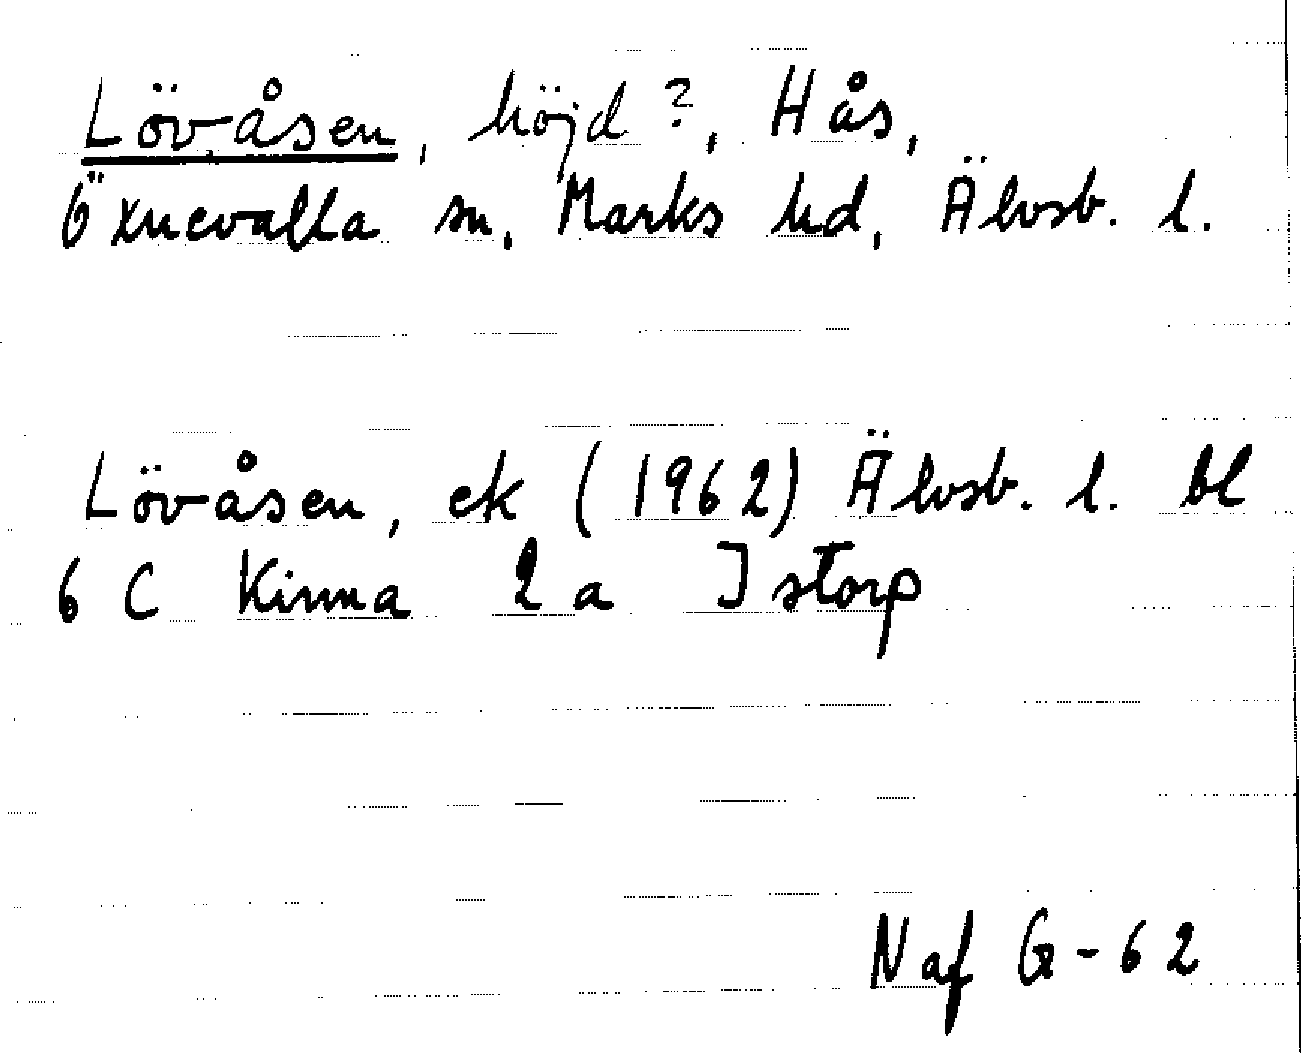 Lövåsen, höjd?, Hås,
Öxnevalla sn, Marks hd, Älvsb. l.
Lövåsen, ek (1962) Älvsb. l. bl
6 C Kinna 2 a Istorp
Naf G-62